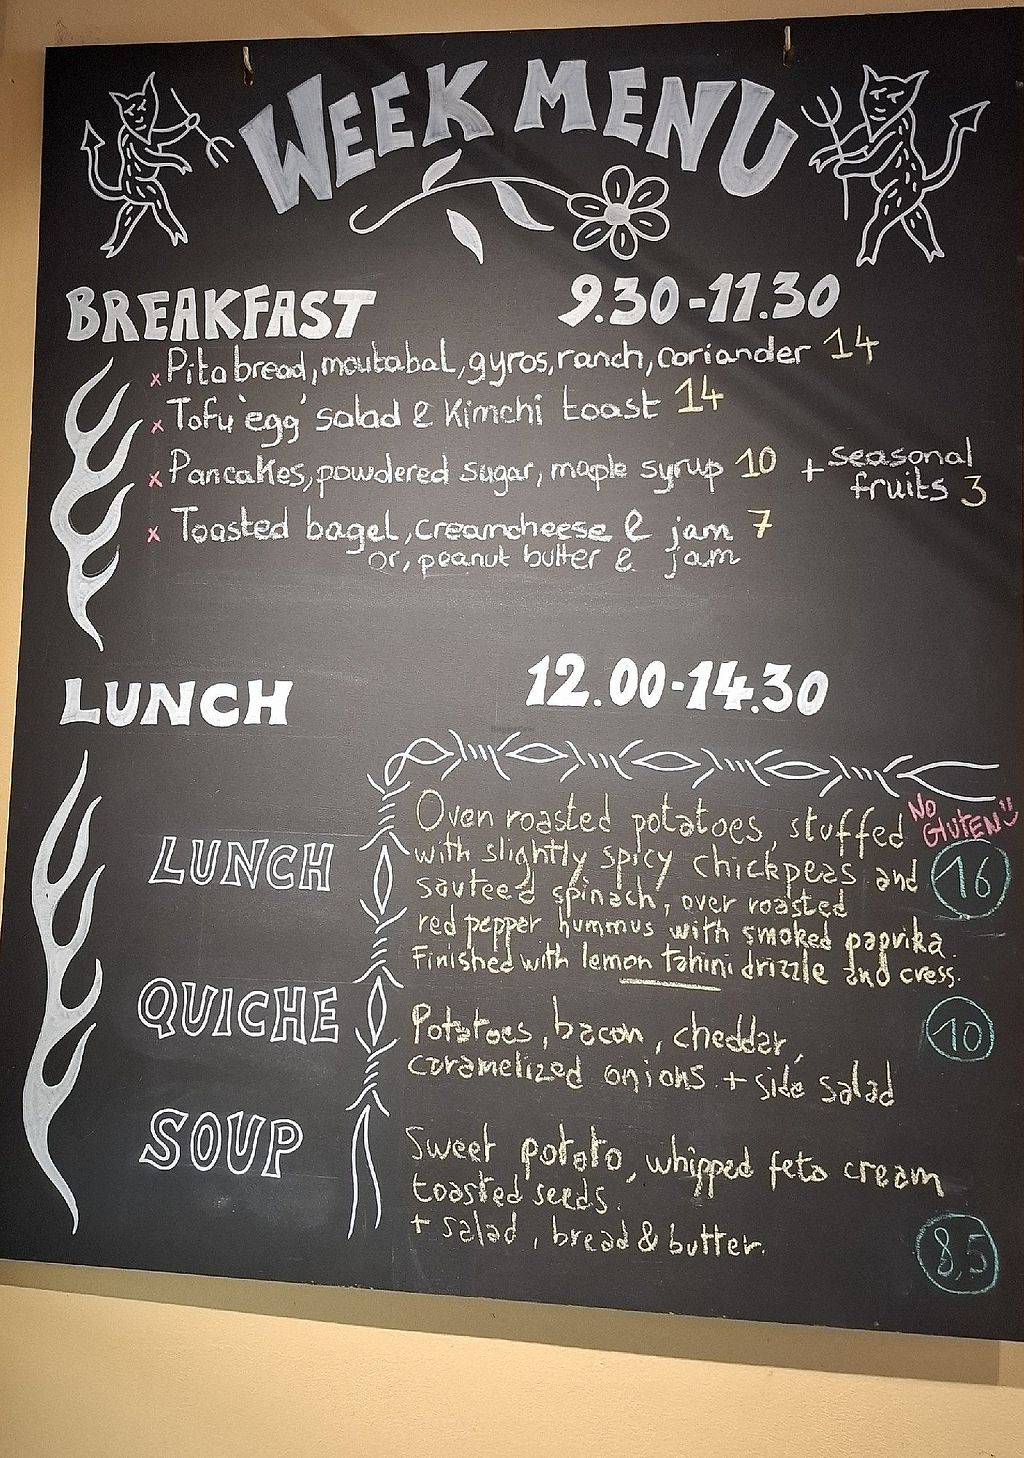 WEEK MENU
BREAKFAST 9.30-11.30
x Pita bread, moutabal, gyros, ranch, coriander 14
x Tofu 'egg' salad & kimchi toast 14
x Pancakes, powdered sugar, maple syrup 10 + seasonal
fruits 3
x Toasted bagel, creamcheese & jam 7
or, peanut butter & jam
LUNCH 12.00-14.30
LUNCH
Oven roasted potatoes, stuffed
NO
GLUTEN
with slightly spicy chickpeas and 16
sauteed spinach, over roasted
red pepper hummus with smoked paprika.
Finished with lemon tahini drizzle and cress.
QUICHE
Potatoes, bacon, cheddar, 10
caramelized onions + side salad
SOUP
Sweet potato, whipped feta cream
toasted seeds.
+ salad, bread & butter.
8,5